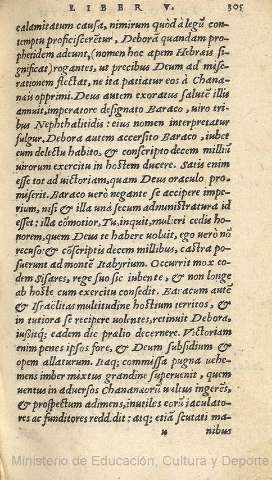 LIBER V. 305
calamitatum causa, nimirum quòd à legū con-
temptu proficisceretur, Deborā quandam pro-
phetidem adeunt, (nomen hoc apem Hebræis si-
gnificat) rogantes, ut precibus Deum ad mise-
rationem flectat, ne ita patiatur eos à Chana-
næis opprimi. Deus autem exoratus salutē illis
annuit, imperatore designato Baraco, uiro tri-
bus Nephthalitidis: eius nomen interpretatur
fulgur. Debora autem accersito Baraco, iubet
eum delectu habito, & conscripto decem milliū
uirorum exercitu in hostem ducere. Satis enim
esse tot ad uictoriam, quam Deus oraculo pro-
miserit. Baraco uerò negante se accipere impe-
rium, nisi & illa unà secum administratura id
esset: illa cōmotior, Tu, inquit, mulieri cedis ho-
norem, quem Deus te habere uoluit, ego uerò nō
recuso: & cōscriptis decem millibus, castra po-
suerunt ad montē Itabyrium. Occurrit mox eo-
dem Sisares, rege suo sic iubente, & non longe
ab hoste cum exercitu consedit. Baracum autē
& Israelitas multitudine hostium territos, &
in tutiora se recipere uolentes, retinuit Debora,
iussitq; eadem die prælio decernere. Victoriam
enim penes ipsos fore, & Deum subsidium &
opem allaturum. Itaq; commissa pugna uehe-
mens imber mixtus grandine superuenit, quem
uentus in aduersos Chananæorū uultus ingerēs,
& prospectum adimens, inutiles eorū iaculato-
res ac funditores reddidit: atq; etiā scutati ma-
u nibus
Ministerio de Educación, Cultura y Deporte